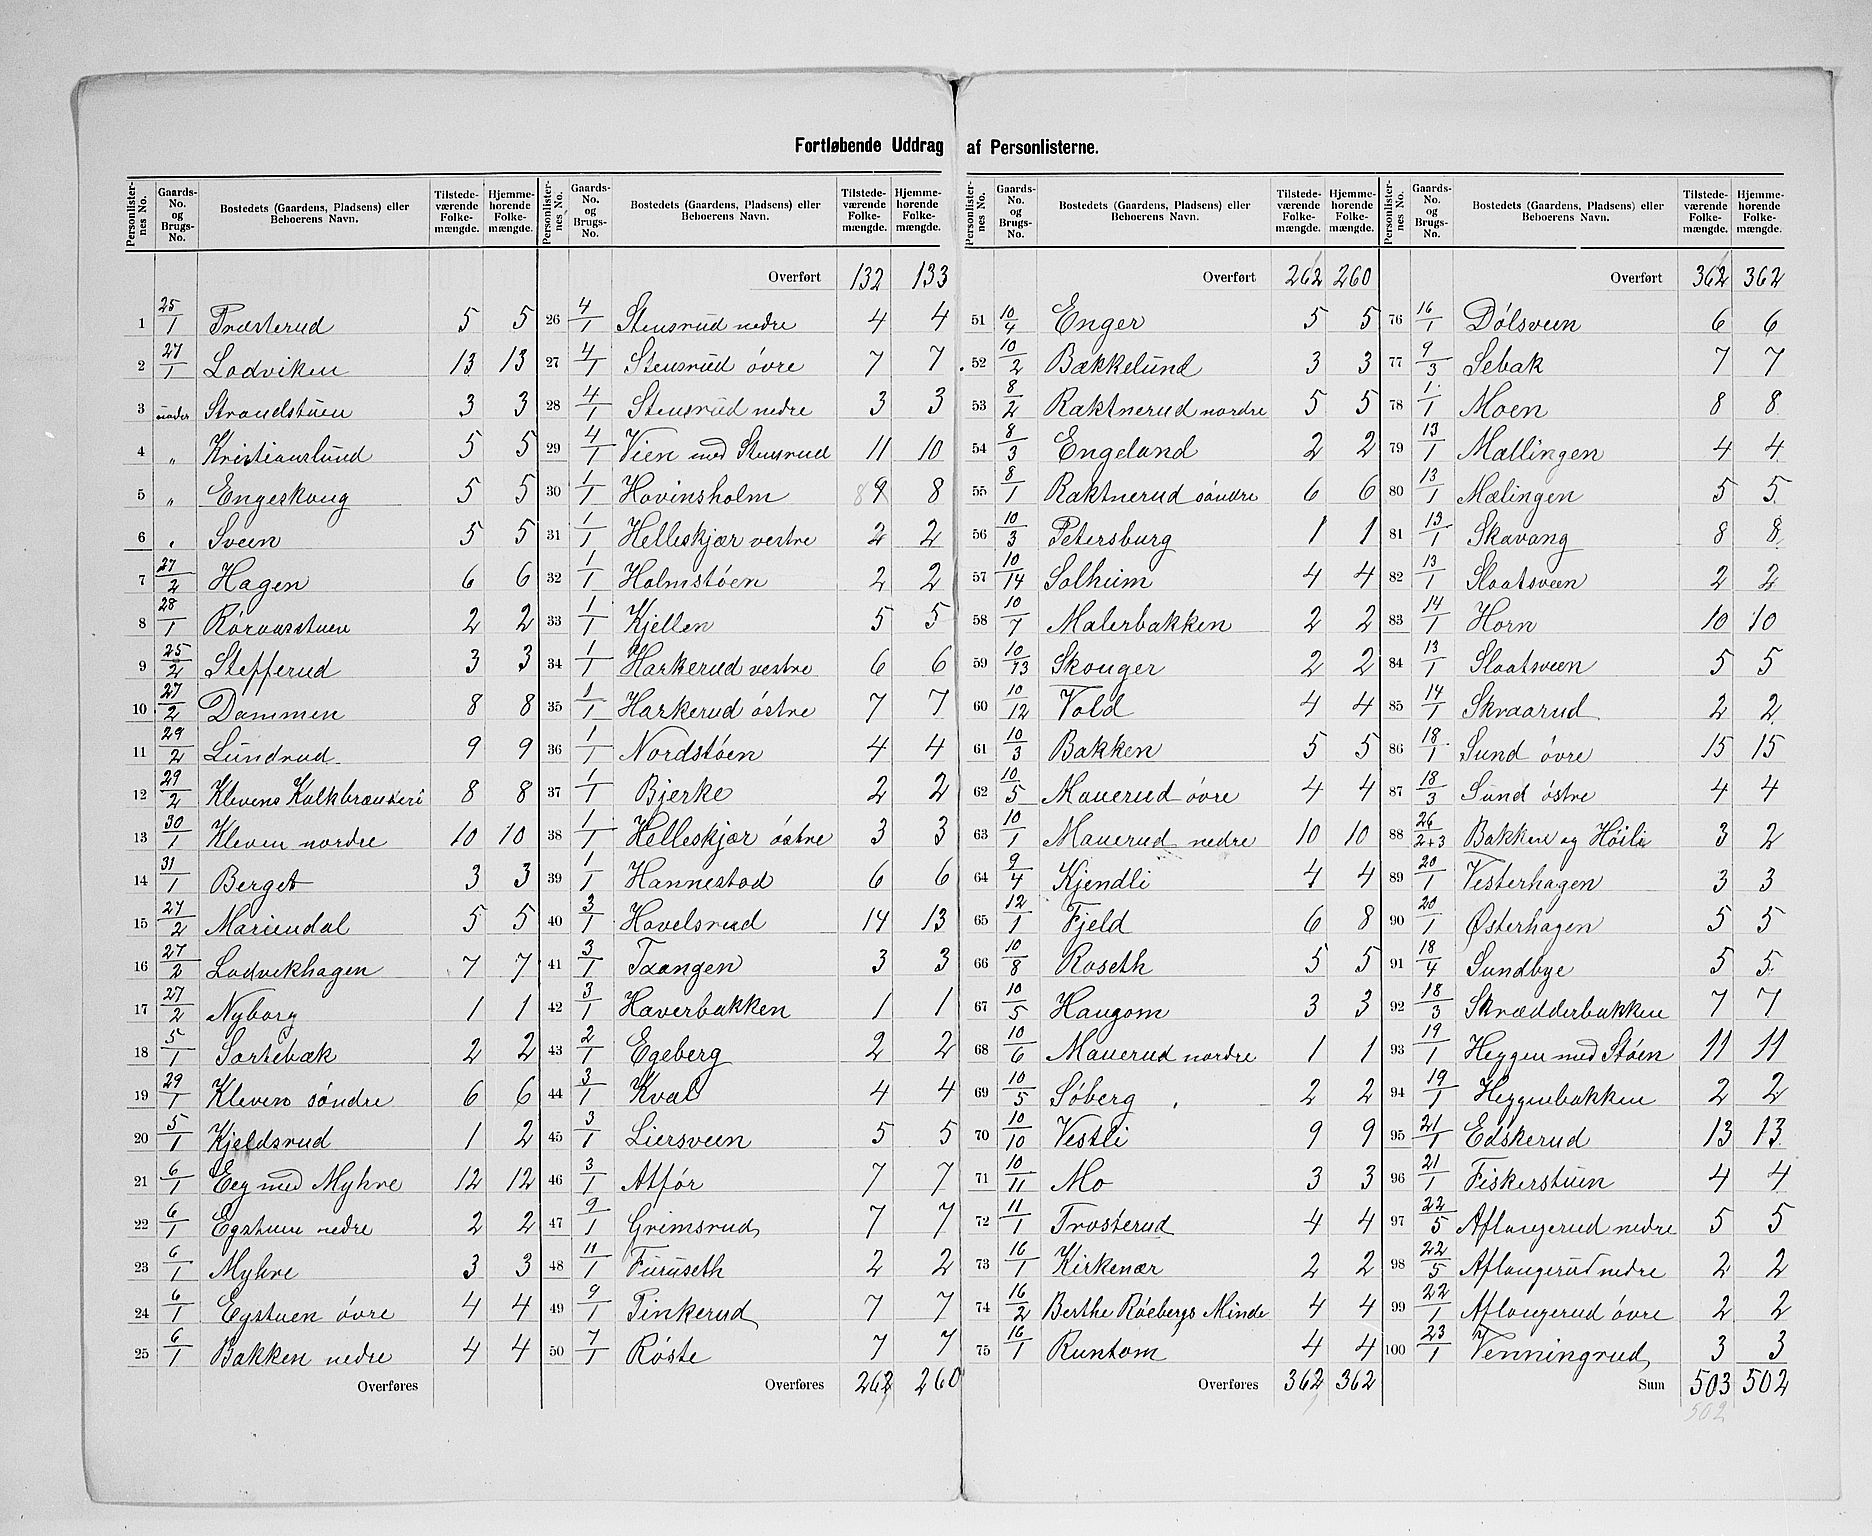 Fortløbende Uddrag af Personlisterne.
Personlisternes No. | Gaards-No. og Brugs-No. | Bostedets (Gaardens, Pladsens) eller Beboerens Navn. | Tilstedeværende Folkemængde. | Hjemmehørende Folkemængde.
1 25/1 Træsterud 5 5
2 27/1 Lodviken 13 13
3 under Strandstuen 3 3
4 " Kristianslund 5 5
5 " Engeskoug 5 5
6 " Sveen 5 5
7 27/2 Hagen 6 6
8 28/1 Röraasstuen 2 2
9 25/2 Stefferud 3 3
10 27/2 Dammen 8 8
11 29/2 Lundrud 9 9
12 29/2 Klevens Kalkbrænderi 8 8
13 30/1 Kleven nordre 10 10
14 31/1 Berget 3 3
15 27/2 Mariendal 5 5
16 27/2 Lodvikhagen 7 7
17 27/2 Nyborg 1 1
18 5/1 Sortebæk 2 2
19 29/1 Kleven søndre 6 6
20 5/1 Kjeldsrud 1 2
21 6/1 Eeg med Myhre 12 12
22 6/1 Egstuen nedre 2 2
23 6/1 Myhre 3 3
24 6/1 Egstuen óvre 4 4
25 6/1 Bakken nedre 4 4
Overføres
Overført 132 133
26 4/1 Stensrud nedre 4 4
27 4/1 Stensrud óvre 7 7
28 4/1 Stensrud nedre 3 3
29 4/1 Vien med Stensrud 11 10
30 1/1 Hovinsholm 8 9 8
31 1/1 Helleskjær vestre 2 2
32 1/1 Holmstóen 2 2
33 1/1 Kjellen 5 5
34 1/1 Harkerud vestre 6 6
35 1/1 Harkerud óstre 7 7
36 1/1 Nordstóen 4 4
37 1/1 Bjerke 2 2
38 1/1 Helleskjær óstre 3 3
39 1/1 Hannestad 6 6
40 3/1 Hovelsrud 14 13
41 3/1 Taangen 3 3
42 3/1 Haverbakken 1 1
43 2/1 Egeberg 2 2
44 3/1 Kval 4 4
45 3/1 Liersveen 5 5
46 3/1 Atfór 7 7
47 9/1 Grimsrud 7 7
48 11/1 Furuseth 2 2
49 9/1 Tinkerud 7 7
50 7/1 Röste 7 7
Overføres 262 260
Personlisternes No. | Gaards-No. og Brugs-No. | Bostedets (Gaardens, Pladsens) eller Beboerens Navn. | Tilstedeværende Folkemængde. | Hjemmehørende Folkemængde.
Overført 262 260
51 10/4 Enger 5 5
52 10/2 Bækkelund 3 3
53 8/2 Raktnerud nordre 5 5
54 8/3 Engeland 2 2
55 8/1 Raktnerud söndre 6 6
56 10/3 Petersburg 1 1
57 10/14 Solheim 4 4
58 10/7 Malerbakken 2 2
59 10/13 Skouger 2 2
60 10/12 Vold 4 4
61 10/3 Bakken 5 5
62 10/5 Mauerud óvre 4 4
63 10/1 Mauerud nedre 10 10
64 9/4 Kjendli 4 4
65 12/1 Fjeld 6 8
66 10/8 Roseth 5 5
67 10/5 Haugom 3 3
68 10/6 Mauerud nordre 1 1
69 10/5 Söberg 2 2
70 10/10 Vestli 9 9
71 10/11 Mo 3 3
72 11/1 Trosterud 4 4
73 16/1 Kirkenær 2 2
74 16/2 Berthe Röebergs Minde 4 4
75 16/1 Runtom 4 4
Overføres 362 362
Overført 362 362
76 16/1 Dólsveen 6 6
77 9/3 Sebak 7 7
78 1/1 Moen 8 8
79 13/1 Mællingen 4 4
80 13/1 Mælingen 5 5
81 13/1 Skavang 8 8
82 13/1 Slaatsveen 2 2
83 14/1 Horn 10 10
84 13/1 Slaatsveen 5 5
85 14/1 Skraarud 2 2
86 18/1 Sund óvre 15 15
87 18/3 Sund óstre 4 4
88 26/2+3 Bakken og Höili 3 2
89 20/1 Vesterhagen 3 3
90 20/1 Østerhagen 5 5
91 18/4 Sundbye 5 5
92 18/3 Skrædderbakken 7 7
93 19/1 Heggen med Stóen 11 11
94 19/1 Heggenbakken 2 2
95 21/1 Edskerud 13 13
96 21/1 Fiskerstuen 4 4
97 22/5 Aflangerud nedre 5 5
98 22/5 Aflangerud nedre 2 2
99 22/1 Aflangerud óvre 2 2
100 23/1 Venningrud 3 3
Sum 503 502
502